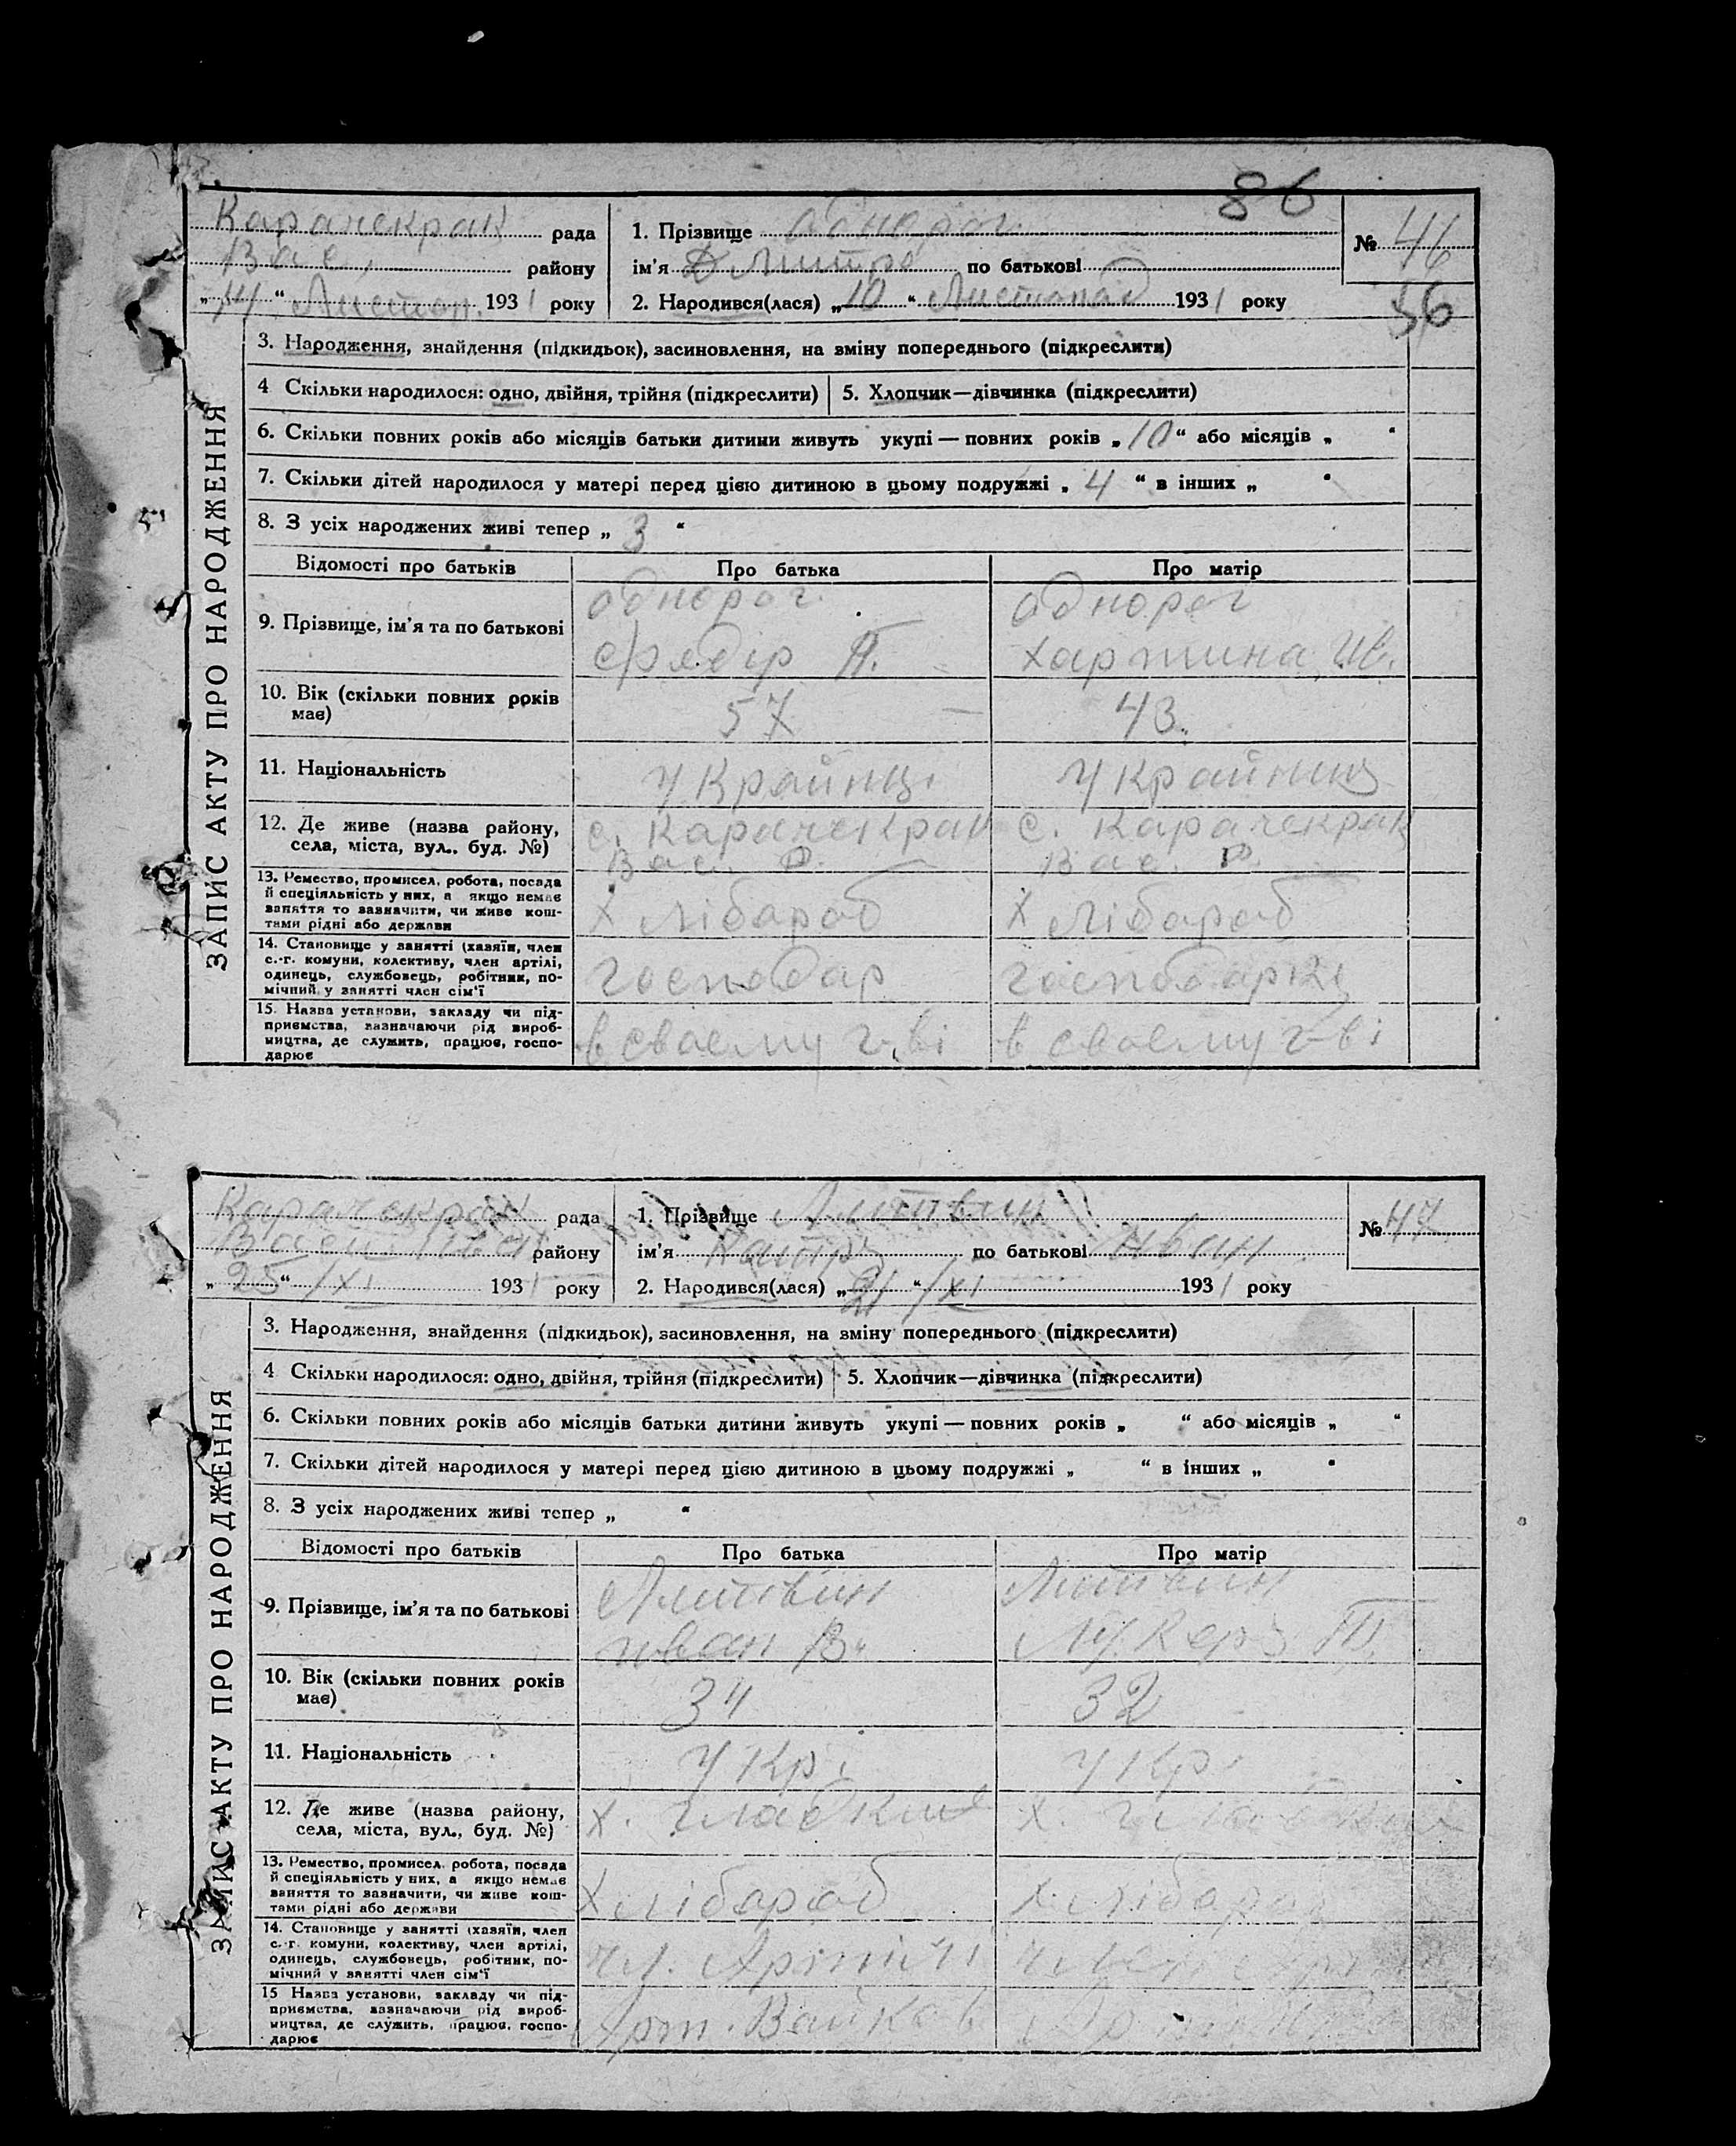 86
Карачекрак рада
Вас. району
„14“ Листоп. 1931 року
1. Прізвище однорог
ім'я Дмитро по батькові
2. Народився(лася) „10“ Листопад 1931 року
№ 46
56
ЗАПИС АКТУ ПРО НАРОДЖЕННЯ
3. Народження, знайдення (підкидьок), засиновлення, на зміну попереднього (підкреслити)
4 Скільки народилося: одно, двійня, трійня (підкреслити)
5. Хлопчик—дівчинка (підкреслити)
6. Скільки повних років або місяців батьки дитини живуть укупі — повних років „10“ або місяців „ “
7. Скільки дітей народилося у матері перед цією дитиною в цьому подружжі „4“ в інших „ “
8. З усіх народжених живі тепер „3“
Відомості про батьків Про батька Про матір
9. Прізвище, ім'я та по батькові
однорог
Фядір П.
однорог
Хартина Ив.
10. Вік (скільки повних років
має)
57 43.
11. Національність
Украйнц. Украйниц
12. Де живе (назва району,
села, міста, вул.. буд. №)
с. Карачекрак
Вас. Р.
с. Карачекрак
Вас. Р.
13. Ремество, промисел, робота, посада
й спеціяльність у них, а якщо немає
заняття то зазначити, чи живе кош-
тами рідні або держави
Хлібароб Хлібароб
14. Становище у занятті (хазяїн, член
с.-г. комуни, колективу, член артілі,
одинець, службовець, робітник, по-
мічний у занятті член сім'ї
господар господарка
15. Назва установи, закладу чи під-
приємства, зазначаючи рід вироб-
ництва, де служить, працює, госпо-
дарює
в своєму г-ві в своєму г-ві
Карачекрак рада
району
„25“ /XI 1931 року
1. Прізвище Литвин
ім'я по батькові Иван
2. Народився(лася) „21“ /XI 1931 року
№ 47
ЗАПИС АКТУ ПРО НАРОДЖЕННЯ
3. Народження, знайдення (підкидьок), засиновлення, на зміну попереднього (підкреслити)
4 Скільки народилося: одно, двійня, трійня (підкреслити)
5. Хлопчик—дівчинка (підкреслити)
6. Скільки повних років або місяців батьки дитини живуть укупі — повних років „ “ або місяців „ “
7. Скільки дітей народилося у матері перед цією дитиною в цьому подружжі „ “ в інших „ “
8. З усіх народжених живі тепер „ “
Відомості про батьків Про батька Про матір
9. Прізвище, ім'я та по батькові
Литвин
иван В.
Литвин
10. Вік (скільки повних років
має)
34 32
11. Національність
Укр. Укр.
12. Де живе (назва району,
села, міста, вул., буд. №)
х. х.
13. Ремество, промисел, робота, посада
й спеціяльність у них, а якщо немає
заняття то зазначити, чи живе кош-
тами рідні або держави
Хлібароб Хлібароб
14. Становище у занятті (хазяїн, член
с.-г. комуни, колективу, член артілі,
одинець, службовець, робітник, по-
мічний у занятті член сім'ї
чл. Артілі член
15 Назва установи, закладу чи під-
приємства, зазначаючи рід вироб-
ництва, де служить, працює, госпо-
дарює
Арт.